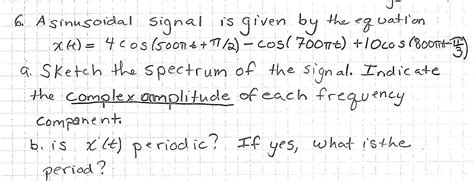 6. A sinusoidal signal is given by the equation
x(t) = 4cos(500πt+π/2) - cos(700πt) + 10cos(800πt-π/3)
a. Sketch the spectrum of the signal. Indicate
the complex amplitude of each frequency
component.
b. is x(t) periodic? If yes, what is the
period?